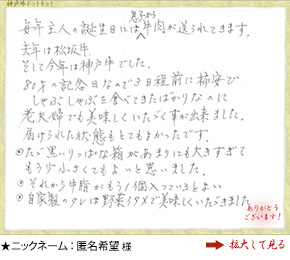 神戸牛ドットネット
息子から
毎年主人の誕生日には牛肉が送られてきます。
去年は松坂牛、
そして今年は神戸牛でした。
80才の記念日なので3日程前に柿安で
しゃぶしゃぶを食べてきたばかりなのに
老夫婦でも美味しくいただく事が出来ました。
届けられた状態もとてもよかったです。
◎ただ黒いりっぱな箱があまりにも大きすぎて
もう少し小さくてもよいと思います。
◎それから牛脂がもう1個入っているとよい
◎自家製のタレは野菜イタメで美味しくいただきました
ありがとう
ございます!
★ニックネーム:匿名希望 様
拡大して見る